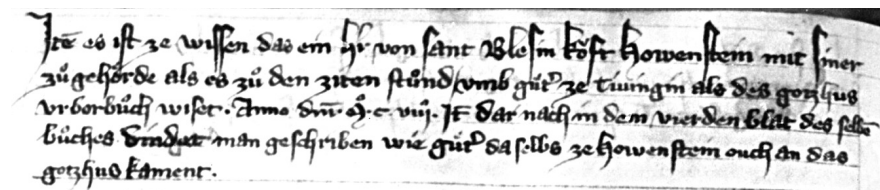 Itē es ist ze wissen das ein hr̄ von sant Blesin kǒft Howenstein mit siner
zůgehǒrde als es zů den ziten stůnd vmb gůt᷑ ze tivingin als des gotzhus
vrborbůch wiset. Anno dm̄. M̊. c. viij. Itē dar nach in dem vierden blat des selbē
bůches vindet man geschriben wie gůt᷑ daselbs ze howenstein ouch an das
gotzhus kament.